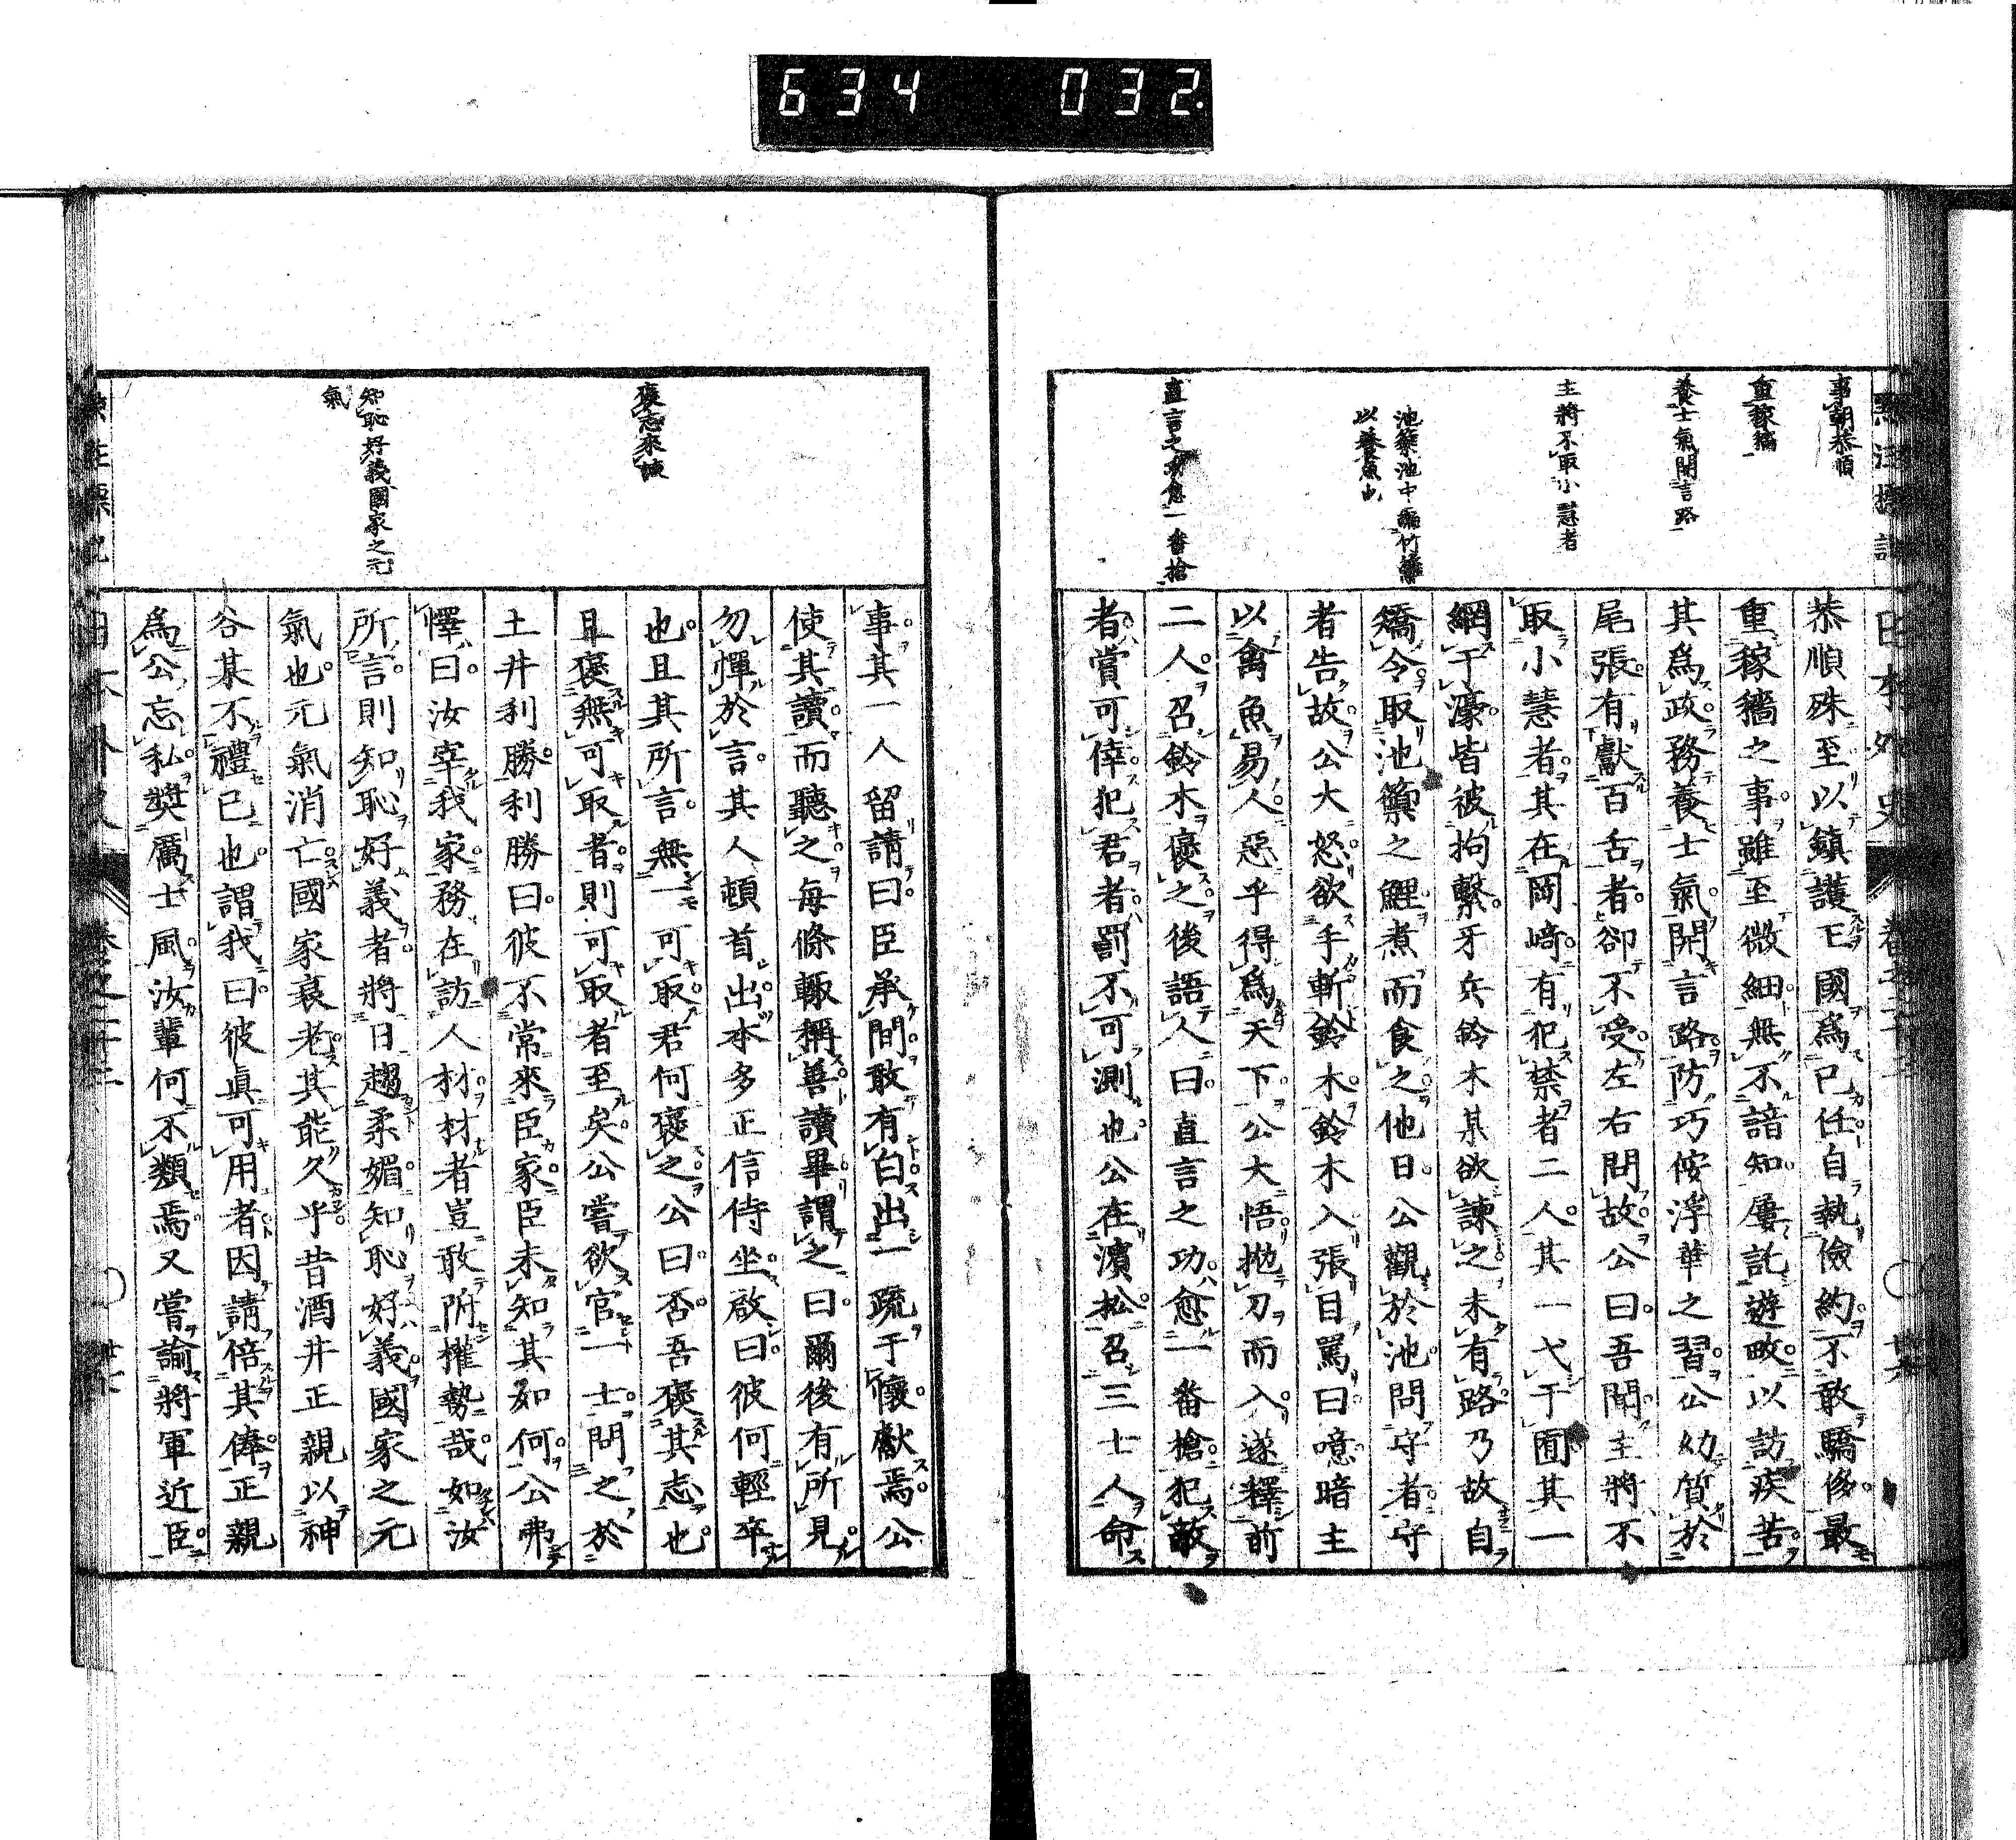 634 032.
日本外史
事朝恭順
重稼穡
養士氣開言路
主將不取小慧者
池籞池中編竹籬
以養魚也
直言之功愈一番槍
恭順殊至以鎮護王國爲己任自執儉約不敢驕侈最
重稼穡之事雖至微細無不諳知屢託遊畋以訪疾苦
其爲政務養士氣開言路防巧佞浮華之習公幼質於
尾張有獻百舌者卻不受左右問故公曰吾聞主將不
取小慧者其在岡﨑有犯禁者二人其一弋于囿其一
網于濠皆被拘繫牙兵鈴木某欲諫之未有路乃故自
矯令取池籞之鯉煮而食之他日公觀於池問守者守
者告故公大怒欲手斬鈴木鈴木入張目罵曰噫暗主
以禽魚易人惡乎得爲天下公大悟拋刀而入遂釋前
二人召鈴木褒之後語人曰直言之功愈一番槍犯敵
者賞可倖犯君者罰不可測也公在濱松召三士人命
褒志來諫
知恥好義國家之元
氣
事其一人留請曰臣承間敢有白出一疏于懷獻焉公
使其讀而聽之每條輙稱善讀畢謂之曰爾後有所見
勿憚於言其人頓首出本多正信侍坐啟曰彼何輕卒
也且其所言無一可取君何褒之公曰否吾褒其志也
且褒無可取者則可取者至矣公嘗欲官一士問之於
土井利勝利勝曰彼不常來臣家臣未知其如何公弗
懌曰汝宰我家務在訪人材材者豈敢附權勢哉如汝
所言則知恥好義者將日趨柔媚知恥好義國家之元
氣也元氣消亡國家衰老其能久乎昔酒井正親以神
谷某不禮己也謂我曰彼眞可用者因請倍其俸正親
爲公忘私奬厲士風汝輩何不類焉又嘗諭將軍近臣